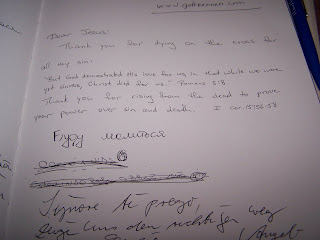 Dear Jesus:
Thank you for dying on the cross for
all my sin:
"But God demonstrated His love for us in that while we were
yet sinners, Christ died for us." Romans 5:8
Thank you for rising from the dead to prove
your power over sin and death. I Cor. 15:
Буду молиться
Signore ti prego,
zeige uns den richtigen weg